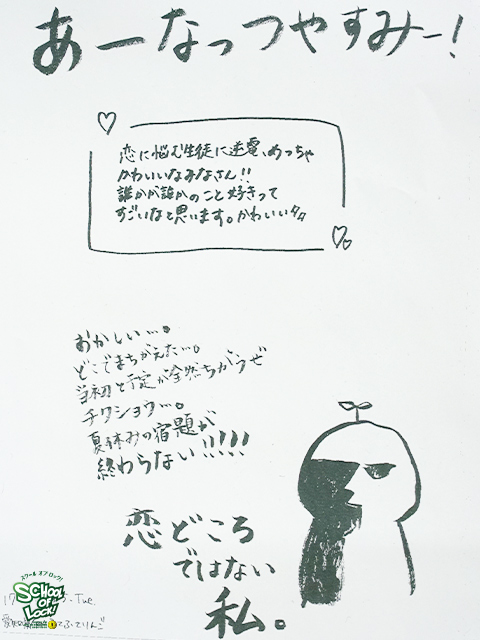 あーなっつやすみー!
恋に悩む生徒に逆電、めっちゃ
かわいいなみなさん!!
誰かが誰かのこと好きって
すごいなと思います。かわいい
おかしい…。
どこでまちがえた…。
当初と予定が全然ちがうぜ
チクショウ…。
夏休みの宿題が
終わらない!!!!!
恋どころ
ではない
私。
スクール オブ ロック!
SCHOOL
OF
LOCK!
Tue.